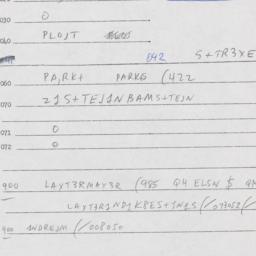 030 0
040 PLOJT
042 S+TR3XE
060 PA,RK+ PARKG (422
070 21S+TEJ1NBAMS+TEJN
071 0
072 0
900 LAYT3RMAY3R (985 Q4 ELSN $
LAYT3R1ND1KBES+1N1S(/073052(/
900 ANDREJM (/008050